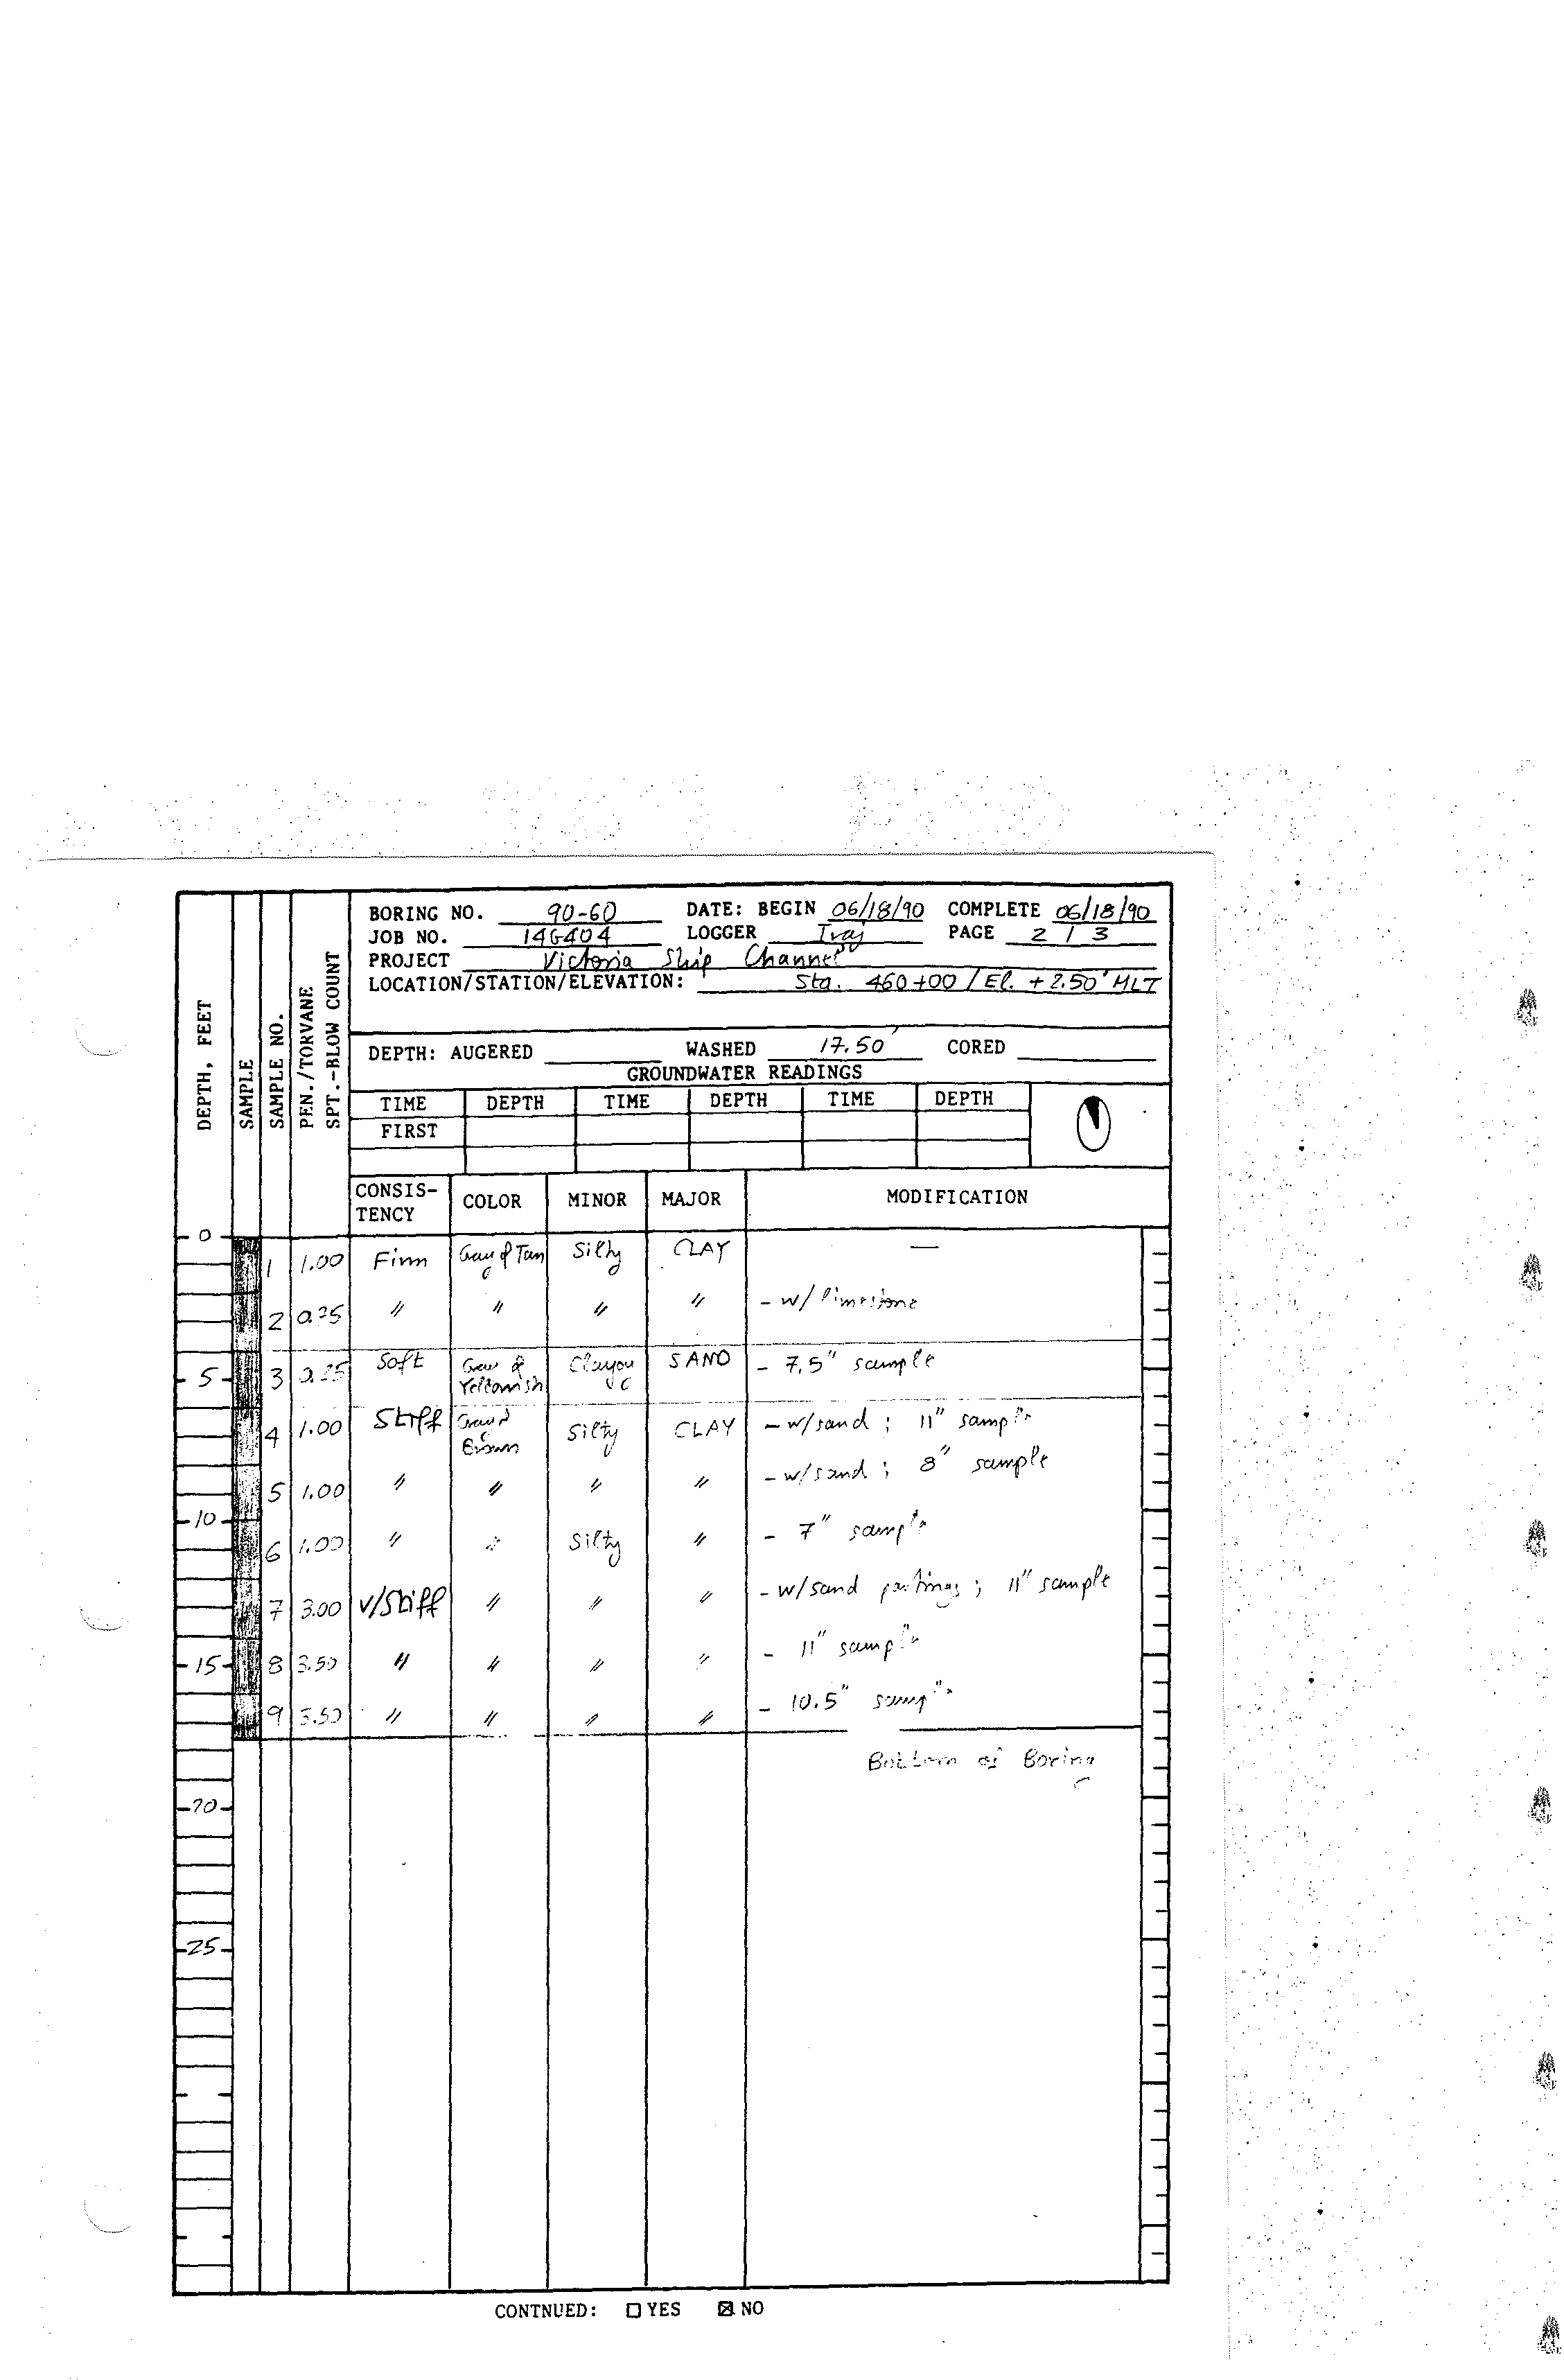 BORING NO. 90-60 DATE: BEGIN 06/18/90 COMPLETE 06/18/90
JOB NO. 14G404 LOGGER Iraj PAGE 2 / 3
PROJECT Victoria Ship Channel
LOCATION/STATION/ELEVATION: Sta. 460+00 / El. +2.50' MLT
DEPTH: AUGERED WASHED 17.50' CORED
GROUNDWATER READINGS
TIME DEPTH TIME DEPTH TIME DEPTH
FIRST
DEPTH, FEET
SAMPLE
SAMPLE NO.
PEN./TORVANE
SPT.-BLOW COUNT
CONSIS-
TENCY COLOR MINOR MAJOR MODIFICATION
0
1 1.00 Firm Gray & Tan Silty CLAY —
2 〃 〃 〃 〃 - w/ limestone
5 3 Soft Gray & Yellowish Clayey SAND - 7.5" sample
4 1.00 Stiff Gray & Brown Silty CLAY - w/sand ; 11" sample
5 1.00 〃 〃 〃 〃 - w/sand ; 8" sample
10
6 1.00 〃 〃 Silty 〃 - 7" sample
7 3.00 V/Stiff 〃 〃 〃 - w/sand partings ; 11" sample
15 8 3.50 〃 〃 〃 〃 - 11" sample
9 3.50 〃 〃 〃 〃 - 10.5" sample
Bottom of Boring
20
25
CONTNUED: ☐ YES ☒ NO